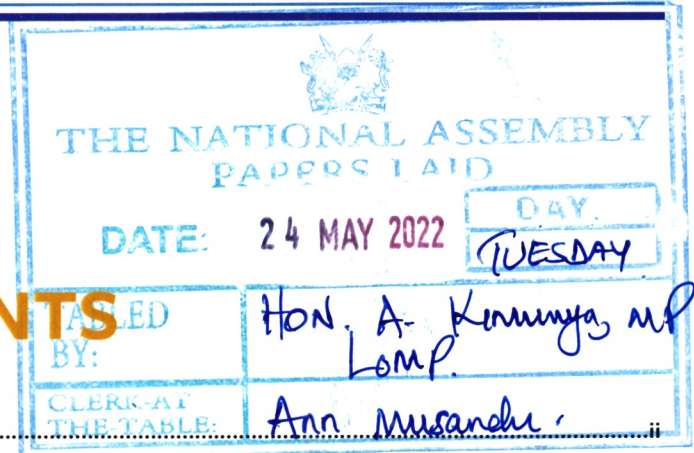 THE NATIONAL ASSEMBLY
PAPERS LAID
DATE: 24 MAY 2022
DAY.
TUESDAY
NTS
TABLED BY:
HON. A. Kimunya, MP
LOMP.
CLERK-AT THE-TABLE:
Ann Musandu.
ii